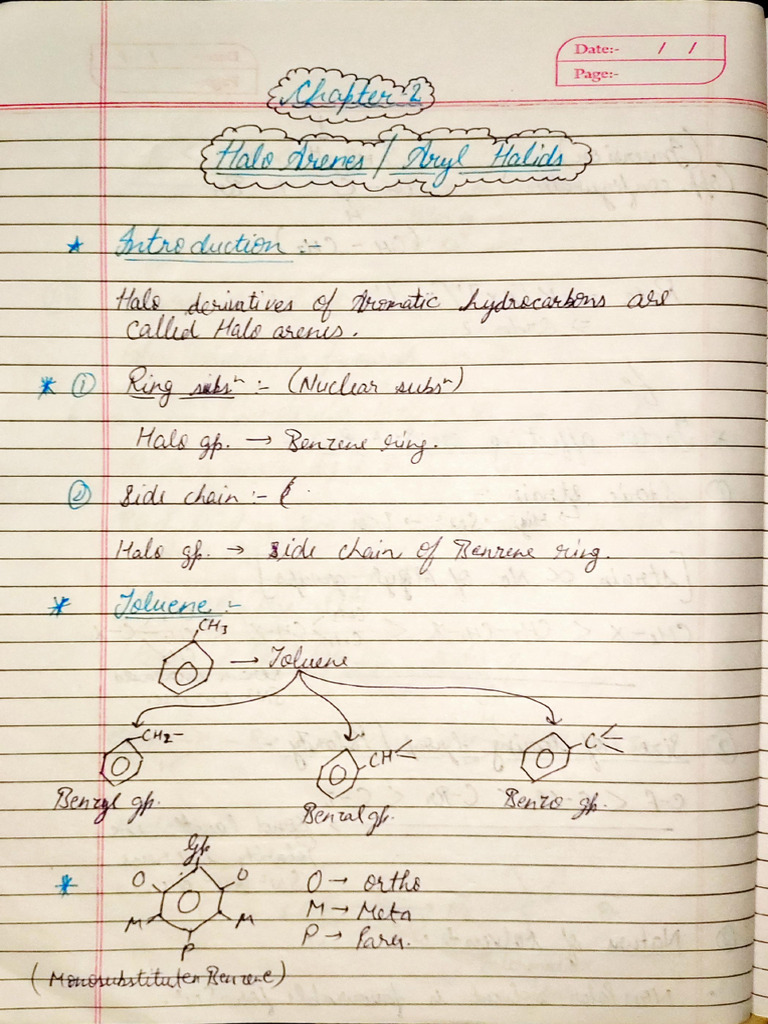 Date:- / /
Page:-
Chapter-2
Halo Arenes / Aryl Halids
* Introduction :-
Halo derivatives of Aromatic hydrocarbons are
called Halo arenes.
* ① Ring subsⁿ :- (Nuclear subsⁿ)
Halo gp. → Benzene ring.
② Side chain :- (
Halo gp. → Side chain of Benzene ring.
* Toluene :-
CH3
→ Toluene
CH2- CH C
Benzyl gp. Benzal gp. Benzo gp.
Gp.
* O O O → Ortho
M M M → Meta
P P → Para.
(Monosubstituten Benzene)